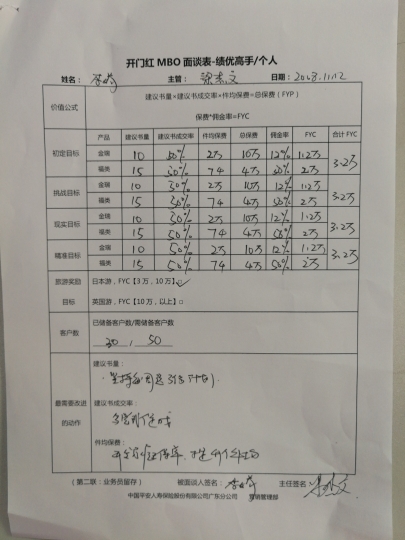 开门红 MBO 面谈表-绩优高手/个人
姓名： 主管： 日期：2018.11.12
价值公式
建议书量×建议书成交率×件均保费=总保费（FYP）
保费*佣金率=FYC
产品 建议书量 建议书成交率 件均保费 总保费 佣金率 FYC 合计 FYC
初定目标 金瑞 10 50% 2万 10万 12% 1.2万 3.2万
福类 15 50% 74 4万 50% 2万
挑战目标 金瑞 10 50% 2万 10万 12% 1.2万 3.2万
福类 15 50% 74 4万 50% 2万
现实目标 金瑞 10 50% 2万 10万 12% 1.2万 3.2万
福类 15 50% 74 4万 50% 2万
精准目标 金瑞 10 50% 2万 10万 12% 1.2万 3.2万
福类 15 50% 74 4万 50% 2万
旅游奖励目标
日本游，FYC【3 万，10 万】
英国游，FYC【10 万，以上】□
客户数
已储备客户数/需储备客户数
30 , 50
最需要改进的动作
建议书量：
建议书成交率：
件均保费：
（第二联：业务员留存） 被面谈人签名： 主任签名：
中国平安人寿保险股份有限公司广东分公司 营销管理部